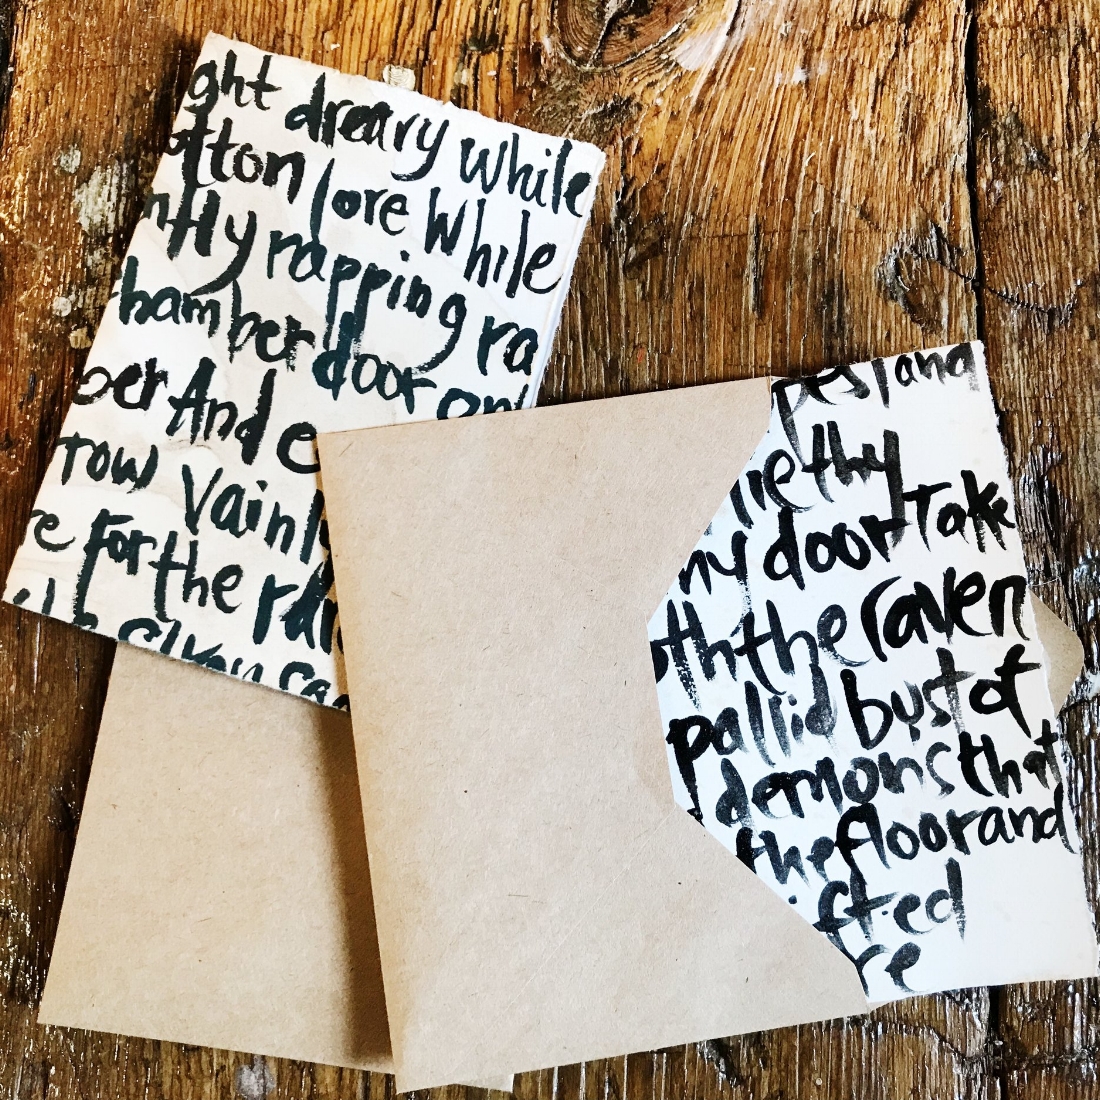 ght dreary while
otton lore While
ntly rapping ra
hamber door on
ber And e
row Vainly
re For the ra
pest and
lie thy
my door Take
oth the raven
pallid bust of
demons that
the floor and
ifted
re